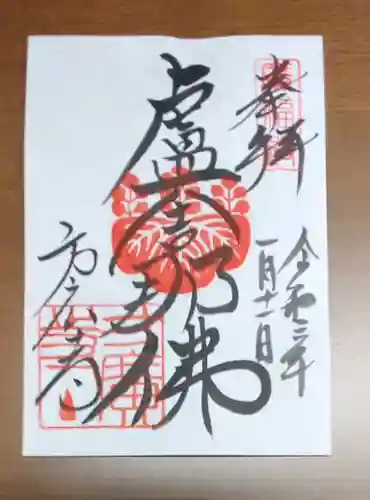 奉拝
令和三年
一月十一日
盧舎那佛
方広寺